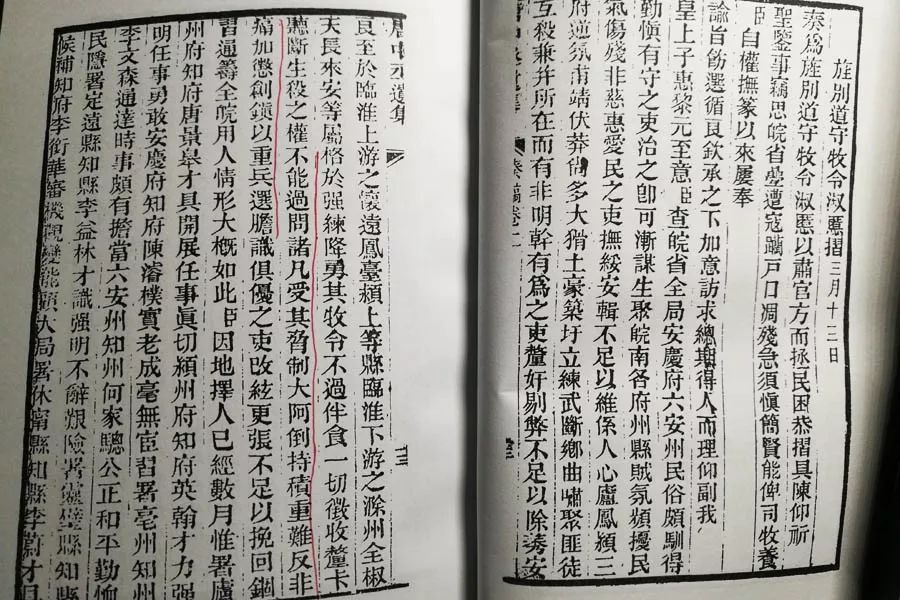 旌別道守牧令淑慝摺三月十三日
奏爲旌別道守牧令淑慝以肅官方而拯民困恭摺具陳仰祈
聖鑒事竊思皖省疊遭寇躪戶口凋殘急須愼簡賢能俾司牧養
臣自權撫篆以來屢奉
諭旨飭選循良欽承之下加意訪求總期得人而理仰副我
皇上子惠黎元至意臣查皖省全局安慶府六安州民俗頗馴得
勤愼有守之吏治之卽可漸謀生聚皖南各府州縣賊氛頻擾民
氣傷殘非慈惠愛民之吏撫綏安輯不足以維係人心廬鳳潁三
府逆氛甫靖伏莽尙多大猾土豪築圩立練武斷鄕曲嘯聚匪徒
互殺兼并所在而有非明幹有爲之吏釐奸剔弊不足以除莠安
奏稿卷十二
唐中丞遺集
良至於臨淮上游之懷遠鳳臺潁上等縣臨淮下游之滁州全椒
天長來安等屬格於强練降勇其牧令不過伴食一切徵收釐卡
聽斷生殺之權不能過問諸凡受其脅制大阿倒持積重難反非
痛加懲創鎭以重兵選膽識俱優之吏改絃更張不足以挽回錮
習通籌全皖用人情形大槪如此臣因地擇人已經數月惟署廬
州府知府唐景皋才具開展任事眞切潁州府知府英翰才力强
明任事勇敢安慶府知府陳濬樸實老成毫無宦習署亳州知州
李文森通達時事頗有擔當六安州知州何家驄公正和平勤恤
民隱署定遠縣知縣李益林才識强明不辭艱險署靈璧縣知縣
候補知府李衔華審機觀變能顧大局署休甯縣知縣李蔚才具